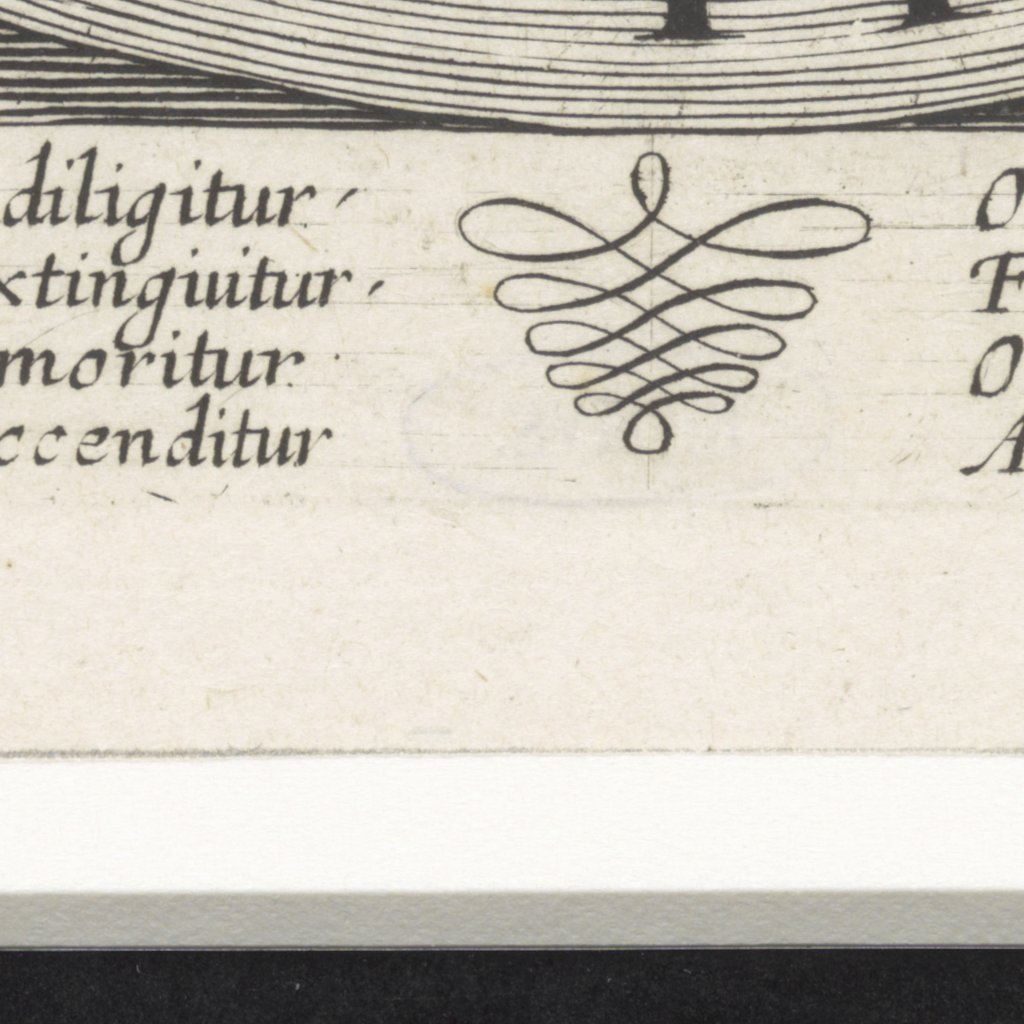 diligitur
xtinguitur
moritur
ccenditur
O
F
O
A